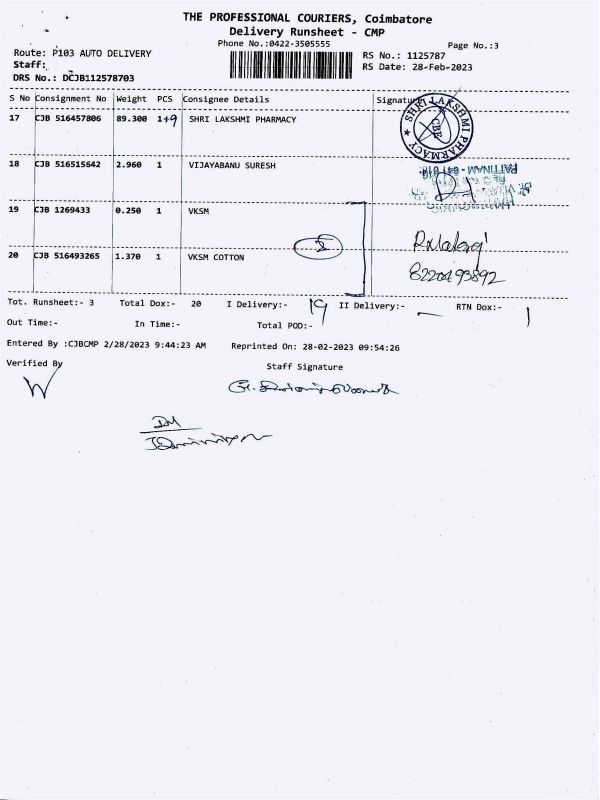 THE PROFESSIONAL COURIERS, Coimbatore
Delivery Runsheet - CMP
Phone No.:0422-3505555
Page No.:3
Route: P103 AUTO DELIVERY
RS No.: 1125787
Staff:
RS Date: 28-Feb-2023
DRS No.: DCJB112578703
S No Consignment No Weight PCS Consignee Details Signature
17 CJB 516457806 89.300 1+9 SHRI LAKSHMI PHARMACY
SHRI LAKSHMI PHARMACY
CBE
18 CJB 516515642 2.960 1 VIJAYABANU SURESH
PATTINAM - 641 016.
19 CJB 1269433 0.250 1 VKSM
2
20 CJB 516493265 1.370 1 VKSM COTTON
Tot. Runsheet:- 3 Total Dox:- 20 I Delivery:- 19 II Delivery:- — RTN Dox:- 1
Out Time:- In Time:- Total POD:-
Entered By :CJBCMP 2/28/2023 9:44:23 AM Reprinted On: 28-02-2023 09:54:26
Verified By Staff Signature